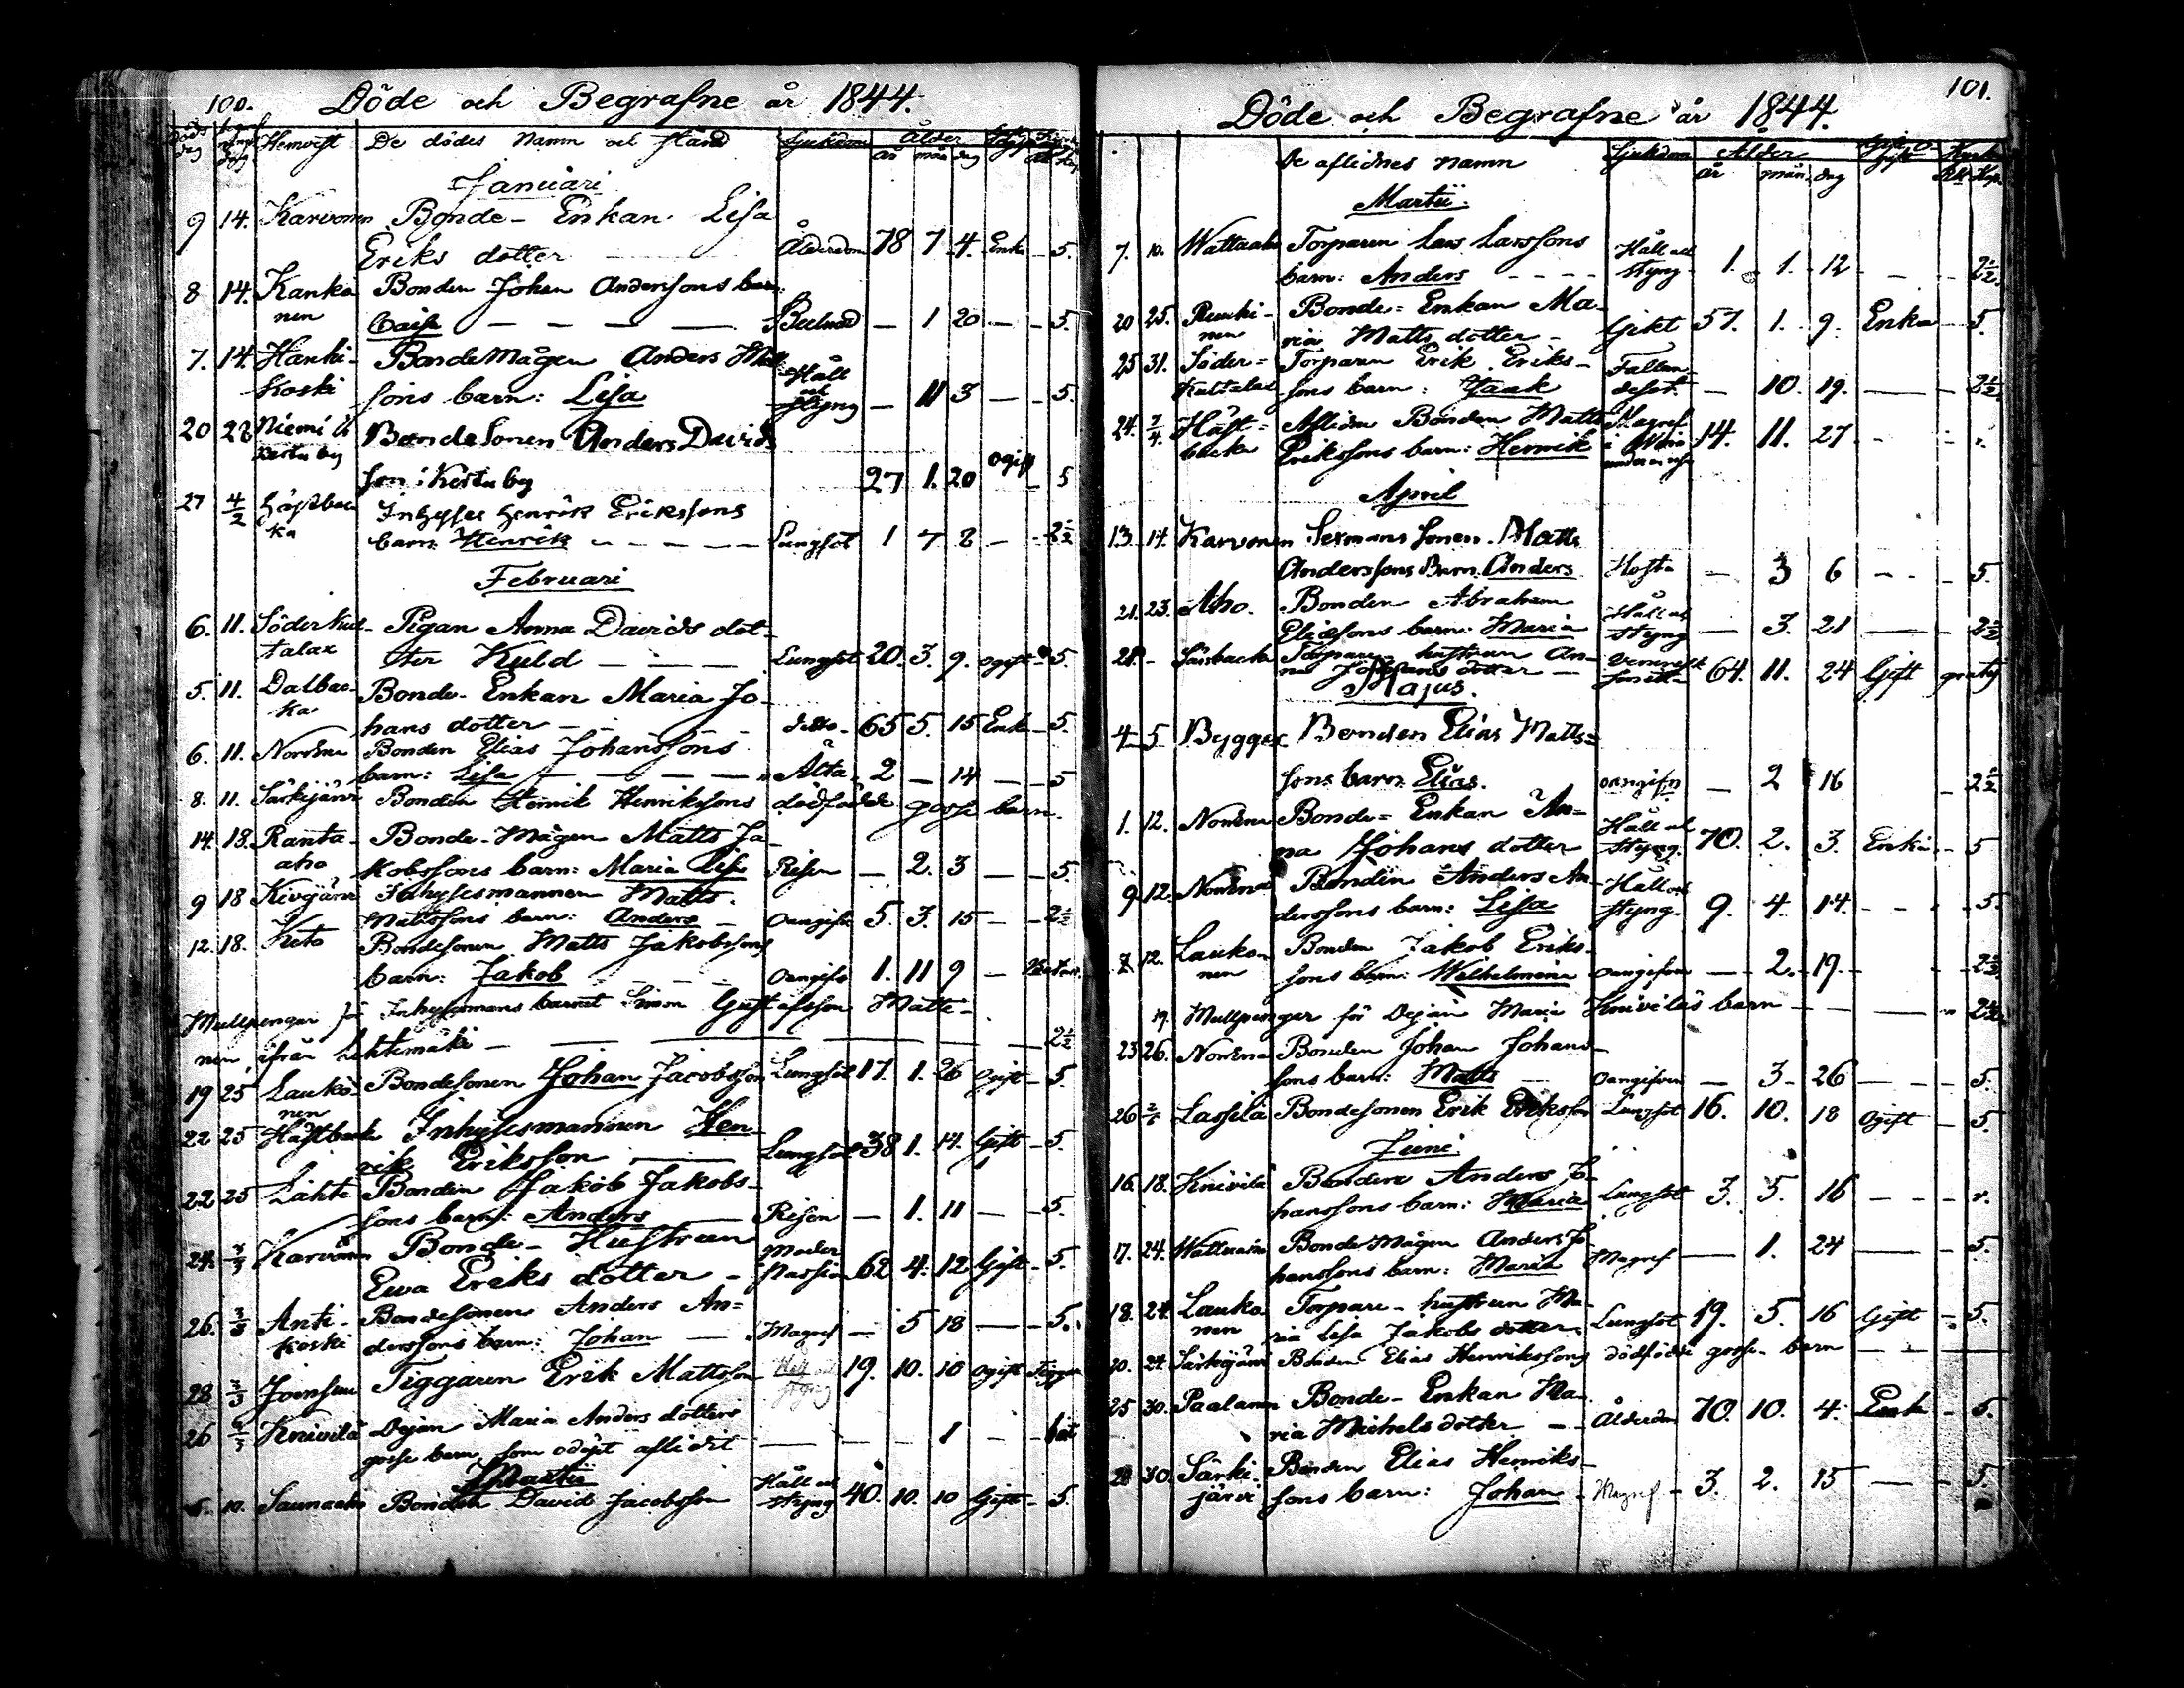 100.
Döde och Begrafne år 1844.
Döds dag Hemvist De dödes Namn och stånd Sjukdom Ålder
år mån dag
Januari
9 14. Karvonen Bonde-Enkan Lisa
Eriks dotter Ålderdom 78 7 4. Enka 5.
8 14. Kanka Bonden Johan Anderssons barn:
nen Caisa 1 20 5.
7. 14. Hanki- BondeMågen Anders Matts
koski sons barn: Lisa Håll och Styng 11 3 5.
20 28 Niemi BondeSonen Anders Davids
son i Kertuby 27 1. 20 ogift 5
27 4/2 Hästbac Inhyses Henrik Erikssons
ka barn Henrik Lungsot 1 7 2 2 1/2
Februari
6. 11. Söderkul- Pigan Anna Davids dot-
talax ter Kuld Lungsot 20. 3. 9. ogift 5.
5. 11. Dalbac- Bonde-Enkan Maria Jo-
ka hans dotter ditto 65 5. 15 Enk 5.
6. 11. Norrena Bonden Elias Johanssons
barn: Lisa Ålta 2 14 5
8. 11. Särkijärvi Bonden Henrik Henrikssons dödfödde gosse barn.
14. 18. Ranta- Bonde-Mågen Matts Ja-
aho kobssons barn: Maria Lisa Risen 2. 3 5.
9 18 Kivijärvi Inhysesmannen Matts
Mattssons barn: Anders Oangifven 5. 3. 15 2 1/2
12. 18. Keto Bondesonen Matts Jakobssons
barn: Jakob Oangifv 1. 11 9
Mullpengar för Inhysesmans barnet Simon Gustafsson Matti-
nen, ifrån Lehtemäki 2 1/2
19 25 Lauko- Bondesonen Johan Jacobsson Lungsot 17. 1. 26 ogift 5.
nen
22 25 Hästbacka Inhysesmannen Hen-
rik Eriksson Lungsot 38 1. 14. Gift 5.
22 25 Lähte Bonden Jakob Jakobs-
sons barn: Anders Risen 1. 11 5.
24. 3/3 Karvonen Bonde-Hustrun
Ewa Eriks dotter Moder Passion 62 4. 12 Gift 5.
26. 3/3 Anti- Bondesonen Anders An=
koski derssons barn: Johan Magref 5 18 5.
28 3/3 Joensuu Tiggaren Erik Mattsson Håll och styng 19. 10. 10 ogift Tiggare
26 Knivilä Dejan Maria Anders dotters
gosse barn, som odöpt aflidit 1
Martii
5. 10. Saunaaho Bonden David Jacobsson Håll och Styng 40. 10. 10 Gift 5.
101.
Döde och Begrafne år 1844.
De aflidnes namn Sjukdom Ålder
år mån. dag
Martii.
7. 10. Wattuaho Torparen Lars Larssons
barn: Anders Håll och styng 1. 1. 12 2 1/2.
20 25. Bonde=Enkan Ma-
nen ria Matts dotter Gikt 57. 1. 9. Enka 5.
25 31. Söder= Torparen Erik Eriks-
Kultalax sons barn: Jaak Fallan desot. 10. 19. 2 1/2
24. 7/4. Häst= Afliden Bonden Matts
backa Erikssons barn: Henrik Magref 14. 11. 27
April
13. 14. Karvonen Sexmans Sonen Matts
Anderssons Barn. Anders Hosta 3 6 5.
21. 23. Aho. Bonden Abraham
Eliassons barn: Maria Håll och Styng 3. 21 2 1/2
21. Särsbacka Torpare hustrun An-
na Johans dotter Venerisk smitta 64. 11. 24 Gift gratis
Majus.
4 5 Byggas Bonden Elias Matts=
sons barn Elias. oangifven 2 16 2 1/2
1. 12. Norrena Bonde=Enkan An=
na Johans dotter Håll och Styng. 70. 2. 3. Enka 5
9 12. Norrena Bonden Anders An
derssons barn: Lisa Håll och styng. 9. 4. 14. 5.
7. 12. Lauko- Bonden Jakob Eriks-
nen sons barn: Wilhelmina oangifven 2. 19. 2 1/2
19. Mullpengar för Dejan Maria Knivilas barn 2 1/2
23 26. Norrena Bonden Johan Johans-
sons barn: Matts oangifven 3 26 5.
26 Lassila Bondesonen Erik Eriksson Lungsot 16. 10. 18 Ogift 5.
Juni.
16. 18. Knivilä Bonden Anders Jo-
hanssons barn: Maria Lungsot 3. 5. 16
17. 24. Wattuaho Bonde Mågen Anders Jo-
hanssons barn: Maria Magref 1. 24 5.
18. 24. Lauko Torpare-hustrun Ma-
nen ria Lisa Jakobs dotter. Lungsot 19. 5. 16 Gift 5.
20. 24. Särkijärvi Bonden Elias Henrikssons dödfödde gosse-barn
25 30. Paalanen Bonde-Enkan Ma-
ria Michels dotter Ålderdom 70. 10. 4. Enka 5.
28 30. Särki- Bonden Elias Henriks-
järvi sons barn: Johan Magref 3. 2. 15 5.